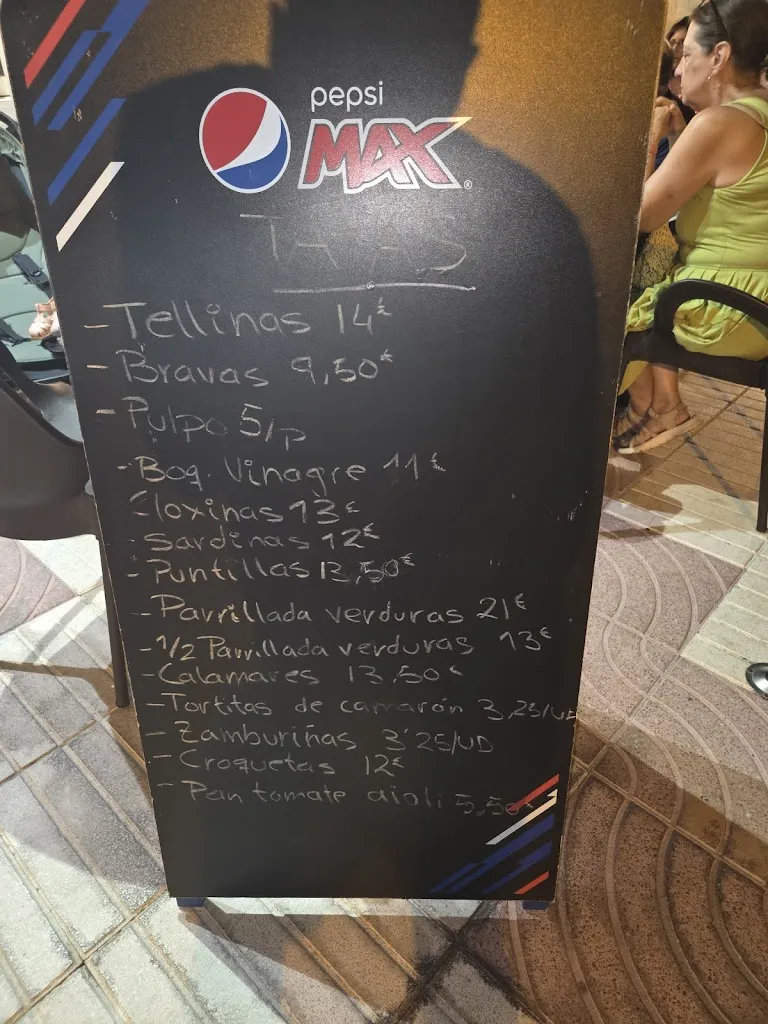 pepsi
MAX
TAPAS
- Tellinas 14€
- Bravas 9,50€
- Pulpo 5/p
- Boq. Vinagre 11€
- Cloxinas 13€
- Sardinas 12€
- Puntillas 13,50€
- Parrillada verduras 21€
- 1/2 Parrillada verduras 13€
- Calamares 13,50€
- Tortitas de camarón 3,25/UD
- Zamburiñas 3'25/UD
- Croquetas 12€
- Pan tomate aioli 5,50€